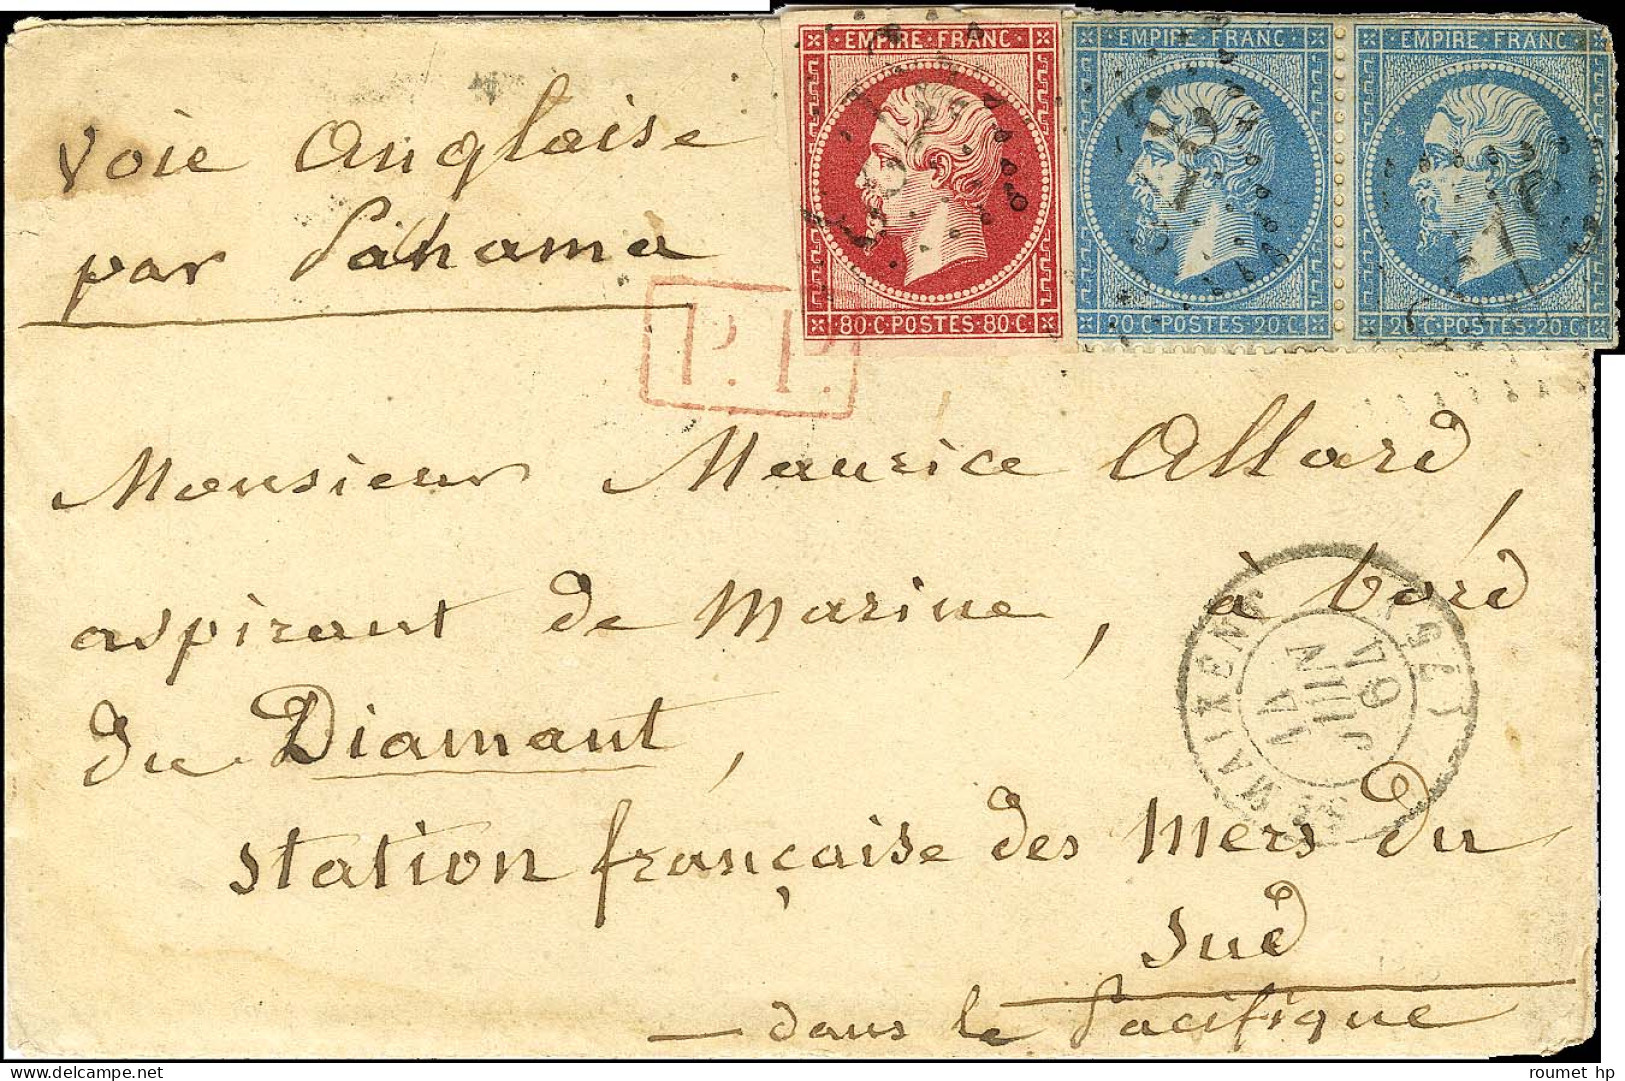 Voie Anglaise
par Panama
EMPIRE·FRANC
80·C·POSTES·80·C
EMPIRE·FRANC
20·C·POSTES·20·C
EMPIRE·FRANC
20·C·POSTES·20·C
P.P.
Monsieur Maurice Allard,
aspirant de Marine, à bord
du Diamant,
station française des Mers du
Sud
— dans le Pacifique
ST MAIXENT
JUIN
roumet hp